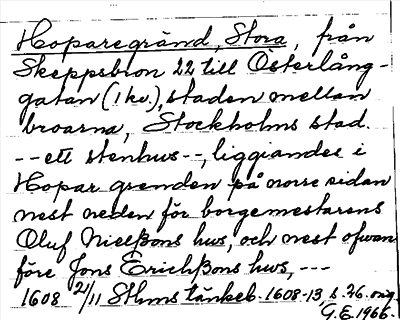 Hoparegränd, Stora, från
Skeppsbron 22 till Österlång-
gatan (1 kv.), staden mellan
broarna, Stockholms stad.
-- ett stenhus --, liggiandes i
Hopar grenden på norre sidan
nest neden för borgemestarens
Oluf Nielßons hws, och nest ofwan
före Jons Erichßons hws, ---
1608 21/11 Sthms tänkeb. 1608-13, s. 76. orig.
G.E. 1966.